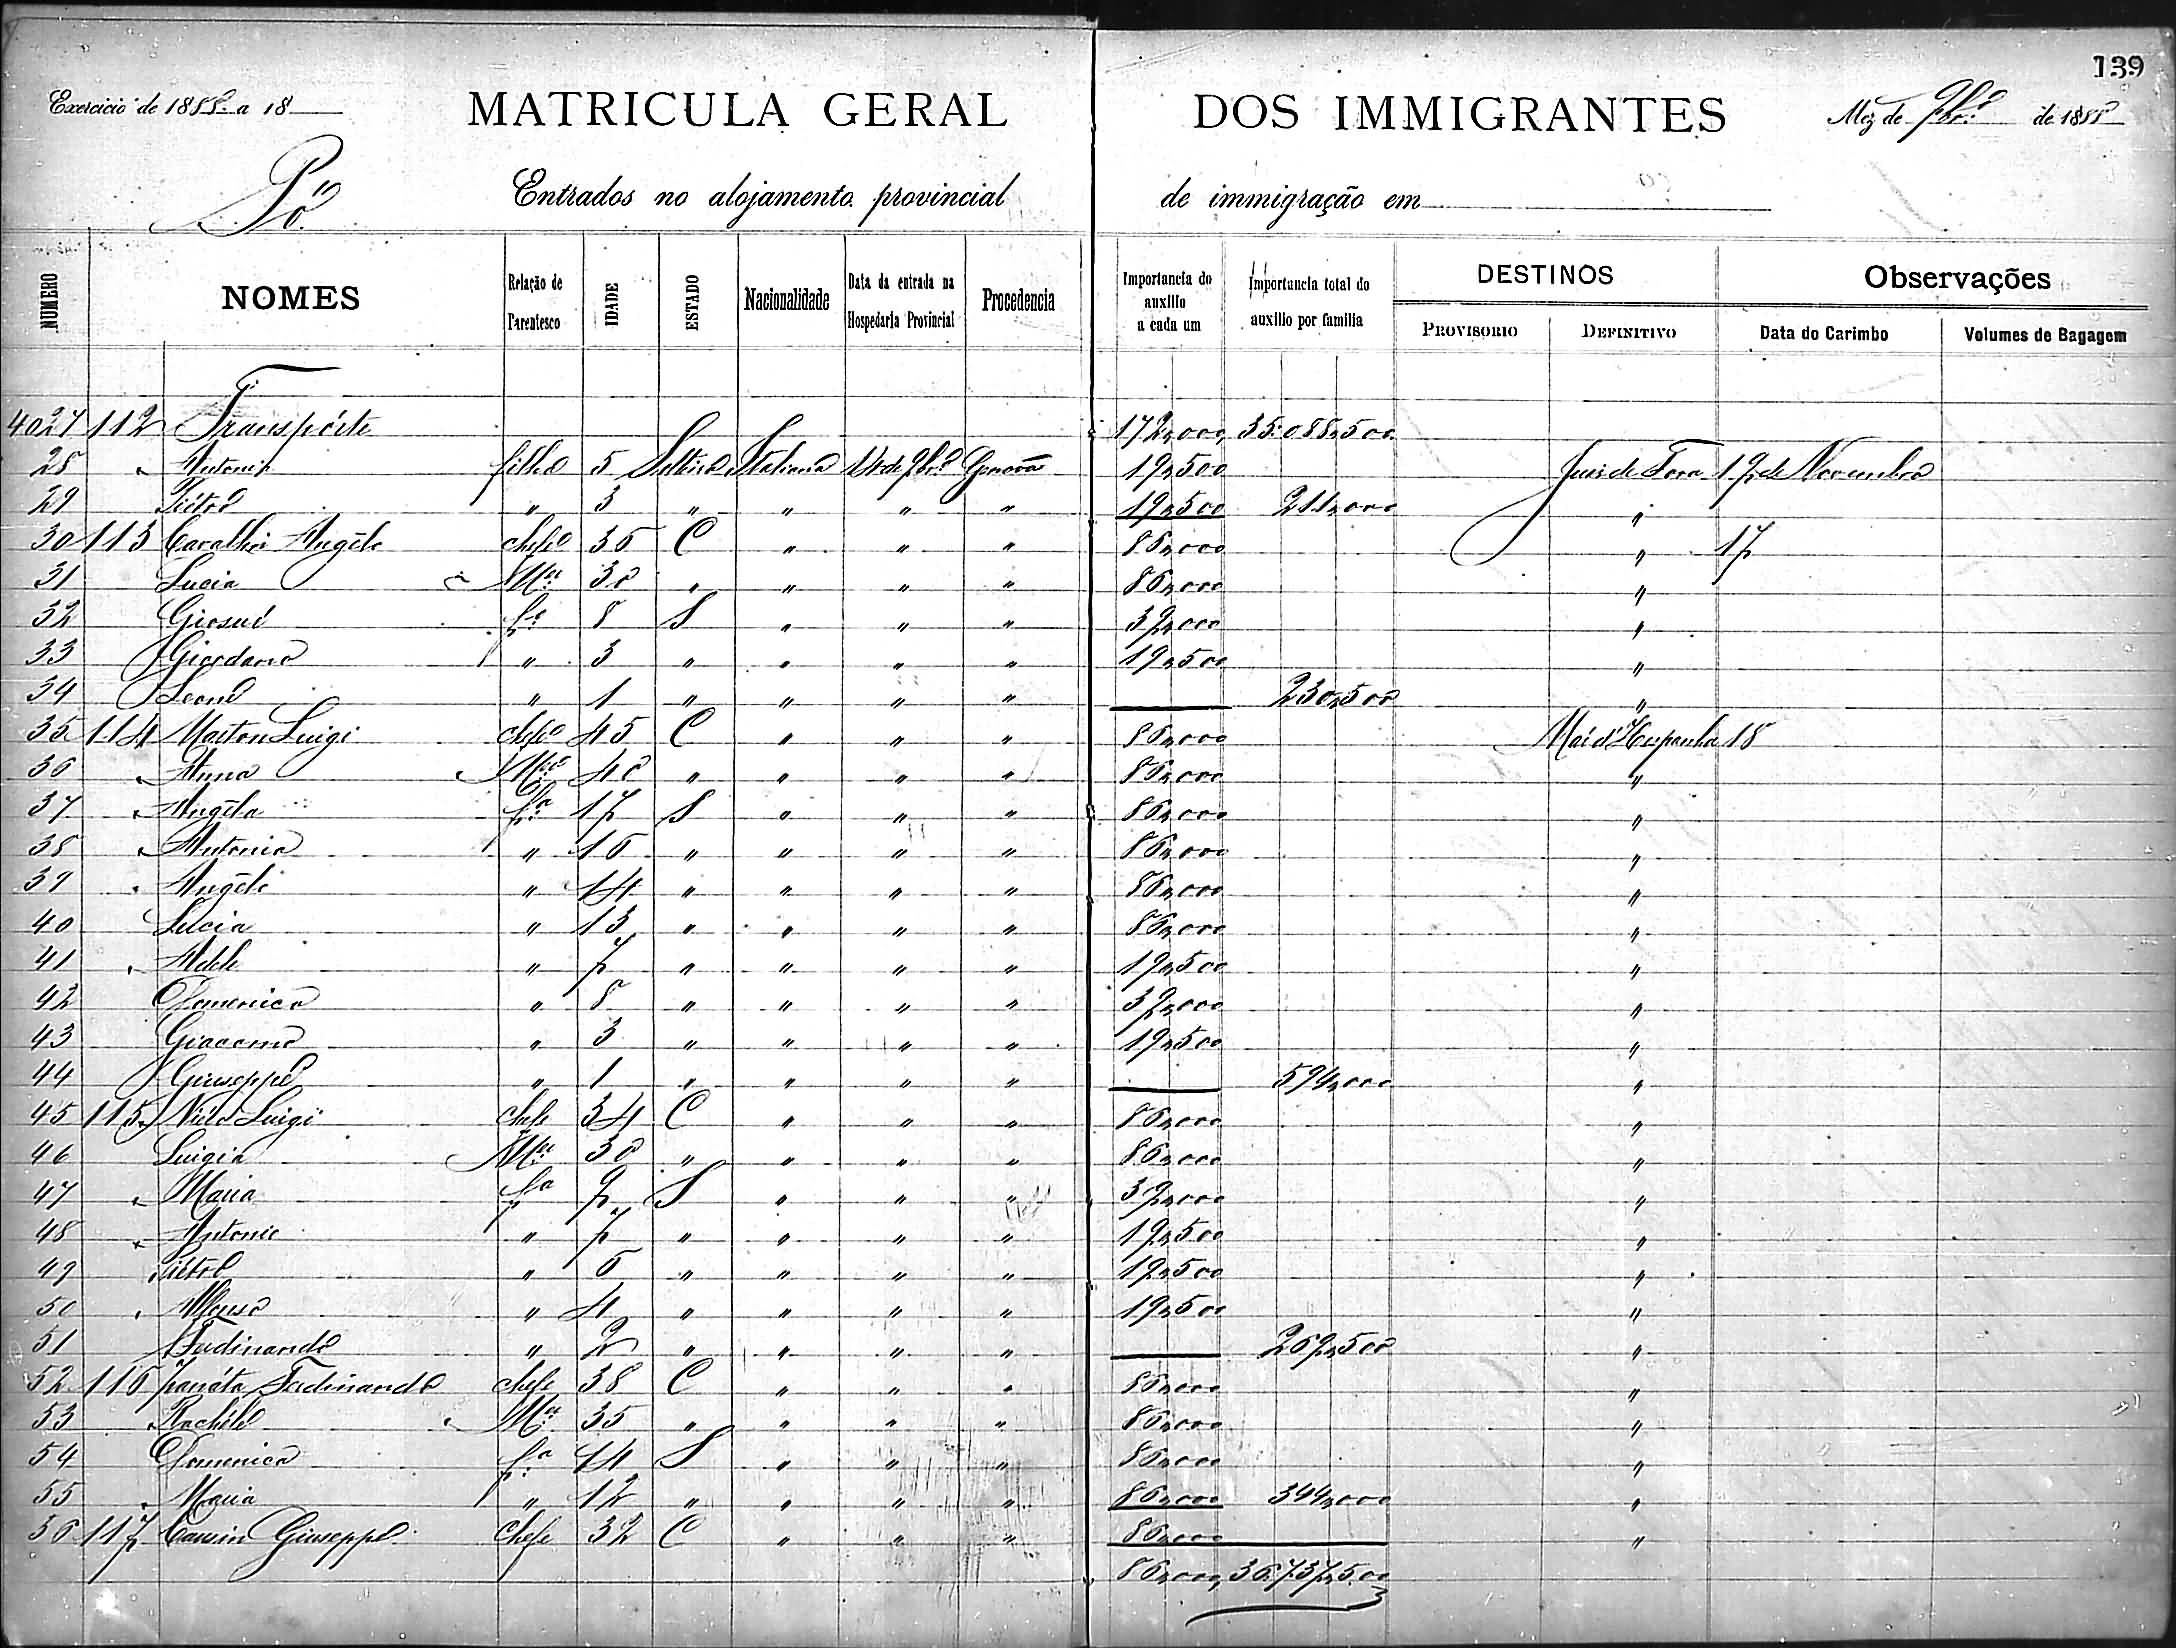 139
Exercicio de 1888 a 18
MATRICULA GERAL DOS IMMIGRANTES
Mez de 9br.º de 1888
Pó
Entrados no alojamento provincial de immigração em
NUMERO NOMES Relação de Parentesco IDADE ESTADO Nacionalidade Data da entrada na Hospedaria Provincial Procedencia Importancia do auxilio a cada um Importancia total do auxilio por familia DESTINOS PROVISORIO DEFINITIVO Observações Data do Carimbo Volumes de Bagagem
4027 112 Transpórte 172,000, 35:088,500
28 " Antonio filho 5 Solteiro Italiana 14 de 9br.º Genova 19,500 Juiz de Fora 17 de Novembro
29 Piétro " 3 " " " " 19,500 211,000 "
30 113 Cavalheri Angélo chefe 36 C " " " 86,000 " 17
31 Lucia Mer 30 " " " " 86,000 "
32 Giosué fº 8 S " " " 39,000 "
33 Giordano " 3 " " " " 19,500 "
34 Leone " 1 " " " " 230,500 "
35 114 Marton Luigi chefe 45 C " " " 86,000 Mar d'Hespanha 18
36 " Anna Mer 40 " " " " 86,000 "
37 " Angéla fª 17 S " " " 86,000 "
38 " Antonio " 16 " " " " 86,000 "
39 " Angélo " 14 " " " " 86,000 "
40 Lucia " 13 " " " " 86,000 "
41 " Adele " 7 " " " " 19,500 "
42 Domenico " 8 " " " " 39,000 "
43 Giacomo " 3 " " " " 19,500 "
44 Giuseppe " 1 " " " " 594,000 "
45 115 Luigi chefe 34 C " " " 86,000 "
46 Luigia Mer 30 " " " " 86,000 "
47 " Maria fª 9 S " " " 39,000 "
48 " Antonio " 7 " " " " 19,500 "
49 Piétro " 6 " " " " 19,500 "
50 " Alfonso " 4 " " " " 19,500 "
51 Ferdinando " 2 " " " " 269,500 "
52 116 Zanáta Ferdinando chefe 38 C " " " 86,000 "
53 Rachéle Mer 35 " " " " 86,000 "
54 Domenica fª 14 S " " " 86,000 "
55 " Maria " 12 " " " " 86,000 344,000 "
56 117 Giuseppe Chefe 32 C " " " 86,000 "
86,000, 36:737,500